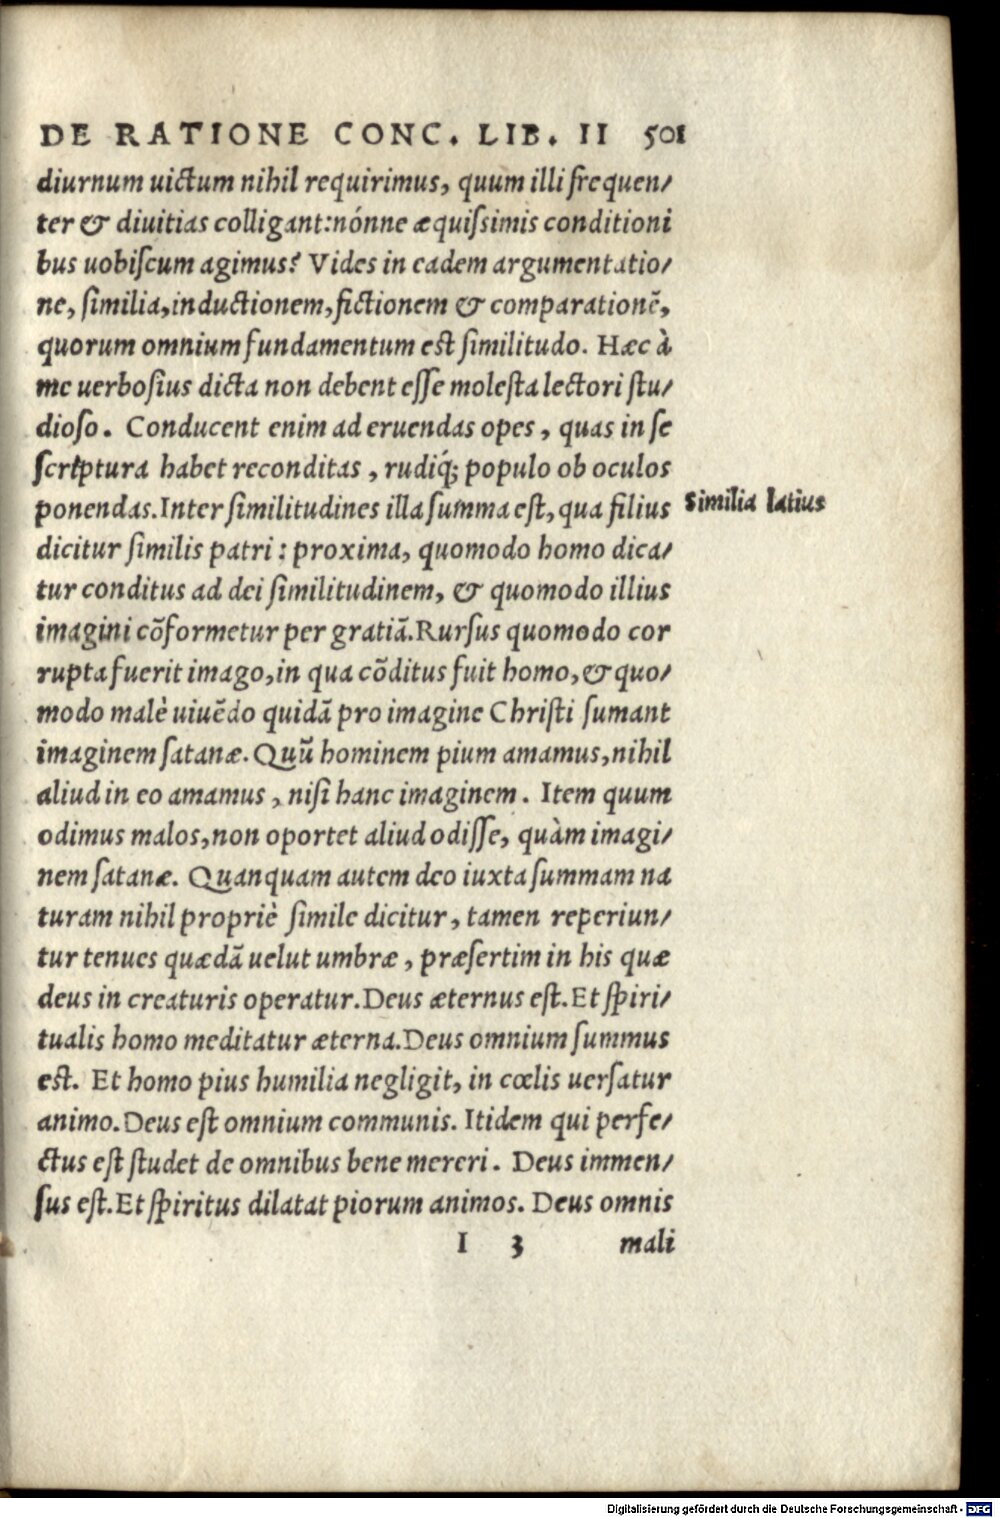 DE RATIONE CONC. LIB. II 501
diurnum uictum nihil requirimus, quum illi frequen/
ter & diuitias colligant:nónne æquiſsimis conditioni
bus uobiſcum agimus? Vides in eadem argumentatio/
ne, ſimilia,inductionem,fictionem & comparationē,
quorum omnium fundamentum eſt ſimilitudo. Hæc à
me uerboſius dicta non debent eſſe moleſta lectori ſtu/
dioſo. Conducent enim ad eruendas opes, quas in ſe
ſcriptura habet reconditas, rudiq́; populo ob oculos
ponendas.Inter ſimilitudines illa ſumma eſt, qua filius
Similia latius
dicitur ſimilis patri: proxima, quomodo homo dica/
tur conditus ad dei ſimilitudinem, & quomodo illius
imagini cōformetur per gratiā.Rurſus quomodo cor
rupta fuerit imago,in qua cōditus fuit homo,& quo/
modo malè uiuēdo quidā pro imagine Chriſti ſumant
imaginem ſatanæ. Quū hominem pium amamus,nihil
aliud in eo amamus, niſi hanc imaginem. Item quum
odimus malos,non oportet aliud odiſſe, quàm imagi/
nem ſatanæ. Quanquam autem deo iuxta ſummam na
turam nihil propriè ſimile dicitur, tamen reperiun/
tur tenues quædā uelut umbræ, præſertim in his quæ
deus in creaturis operatur.Deus æternus eſt.Et ſpiri/
tualis homo meditatur æterna.Deus omnium ſummus
eſt. Et homo pius humilia negligit, in cœlis uerſatur
animo.Deus eſt omnium communis. Itidem qui perfe/
ctus eſt ſtudet de omnibus bene mereri. Deus immen/
ſus eſt.Et ſpiritus dilatat piorum animos. Deus omnis
I 3 mali
Digitalisierung gefördert durch die Deutsche Forschungsgemeinschaft - DFG